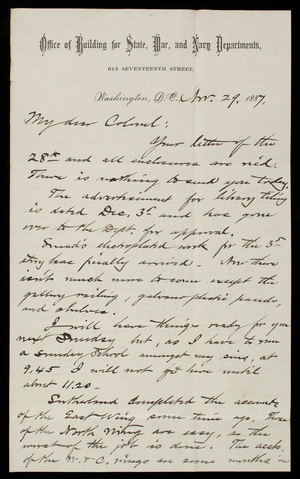 Office of Building for State, War, and Navy Departments,
612 SEVENTEENTH STREET,
Washington, D.C. Nov. 29. 1887.
My dear Colonel:
Your letter of the
28th and all enclosures are rec'd.
There is nothing to send you today.
The advertisement for library tiling
is dated Dec. 3d and has gone
over to the Dept. for approval.
electroplated work for the 3d
story has finally arrived. Now there
isn't much more to come except the
gallery railing, galvano plastic panels,
and shelves.
I will have things ready for you
next Sunday but, as I have to run
a Sunday School amongst my sins, at
9.45 I will not get here until
about 11.20 -
Sutherland completed the accounts
of the East Wing some time ago. Those
of the North Wing are easy, as the
worst of the job is done. The accts.
of the W. & C. Wings are some months in